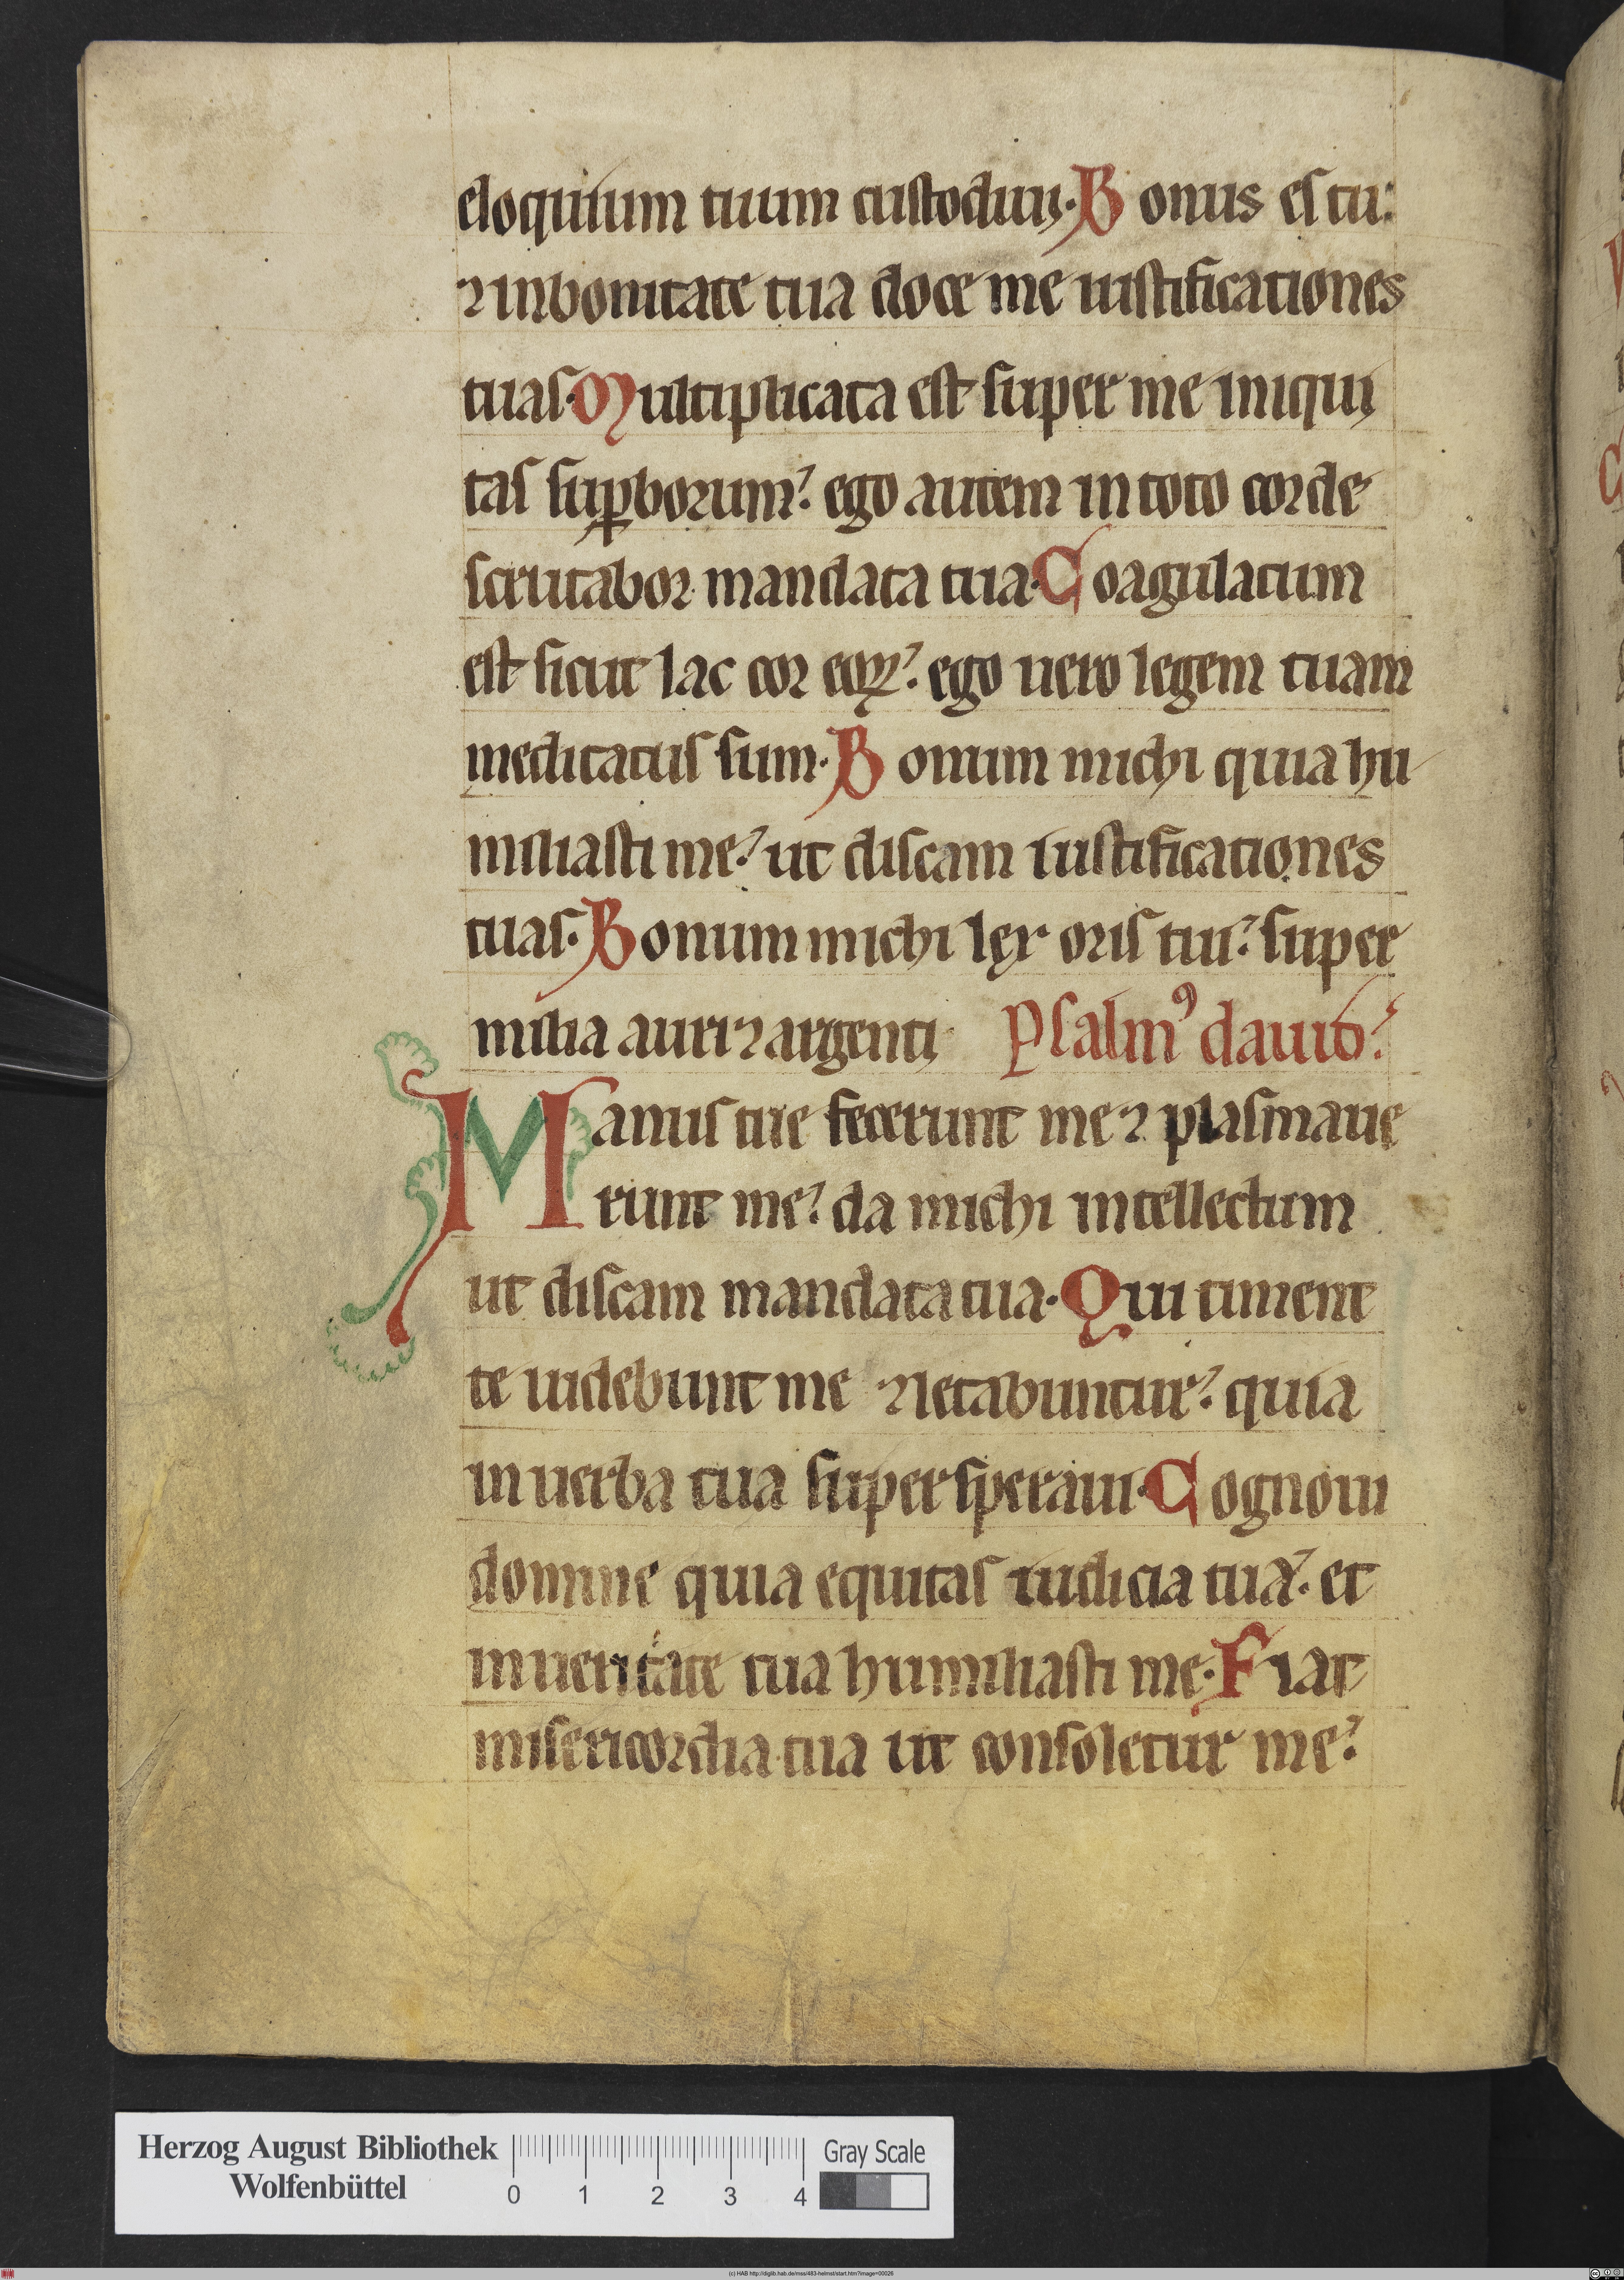 eloquium tuum custodiui. Bonus es tu:
⁊ in bonitate tua doce me iustificationes
tuas. Multiplicata est super me iniqui
tas suꝑborum? ego autem in toto corde
scrutabor mandata tua. Coagulatum
est sicut lac cor eoꝝ? ego uero legem tuam
meditatus sum. Bonum michi quia hu
miliasti me? ut discam iustificationes
tuas. Bonum michi lęx oris tui? super
milia auri ⁊ argenti Psalmꝰ dauid?
Manus tue fecerunt me ⁊ plasmaue
runt me? da michi intellectum
ut discam mandata tua. Qui timent
te uidebunt me ⁊ letabuntur? quia
in uerba tua supersperaui. Cognoui
domine quia equitas iudicia tua? et
in ueritate tua humiliasti me. Fiat
misericordia tua ut consoletur me?
Herzog August Bibliothek
Wolfenbüttel
0 1 2 3 4
Gray Scale
(c) HAB http://diglib.hab.de/mss/483-helmst/start.htm?image=00026